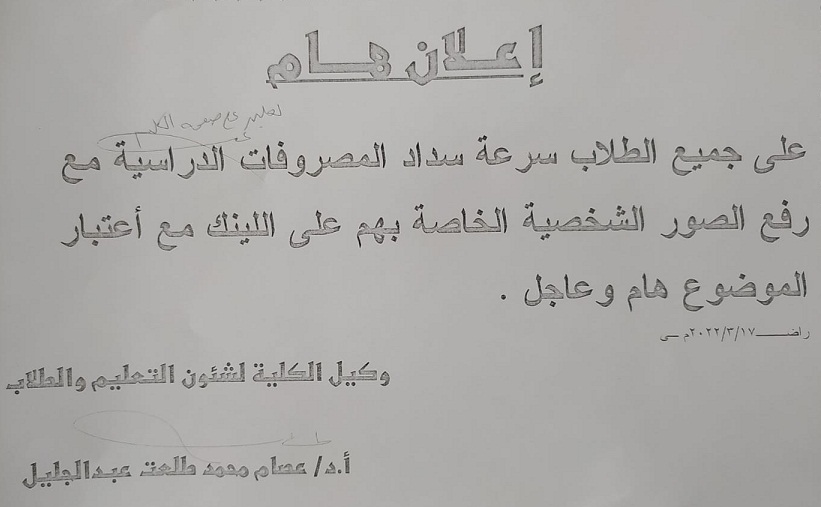 إعلان هام
على جميع الطلاب سرعة سداد المصروفات الدراسية مع
رفع الصور الشخصية الخاصة بهم على اللينك مع أعتبار
الموضوع هام وعاجل .
راضــــــ٢٠٢٢/٣/١٧م ــى
وكيل الكلية لشئون التعليم والطلاب
أ.د/ عصام محمد طلعت عبدالجليل